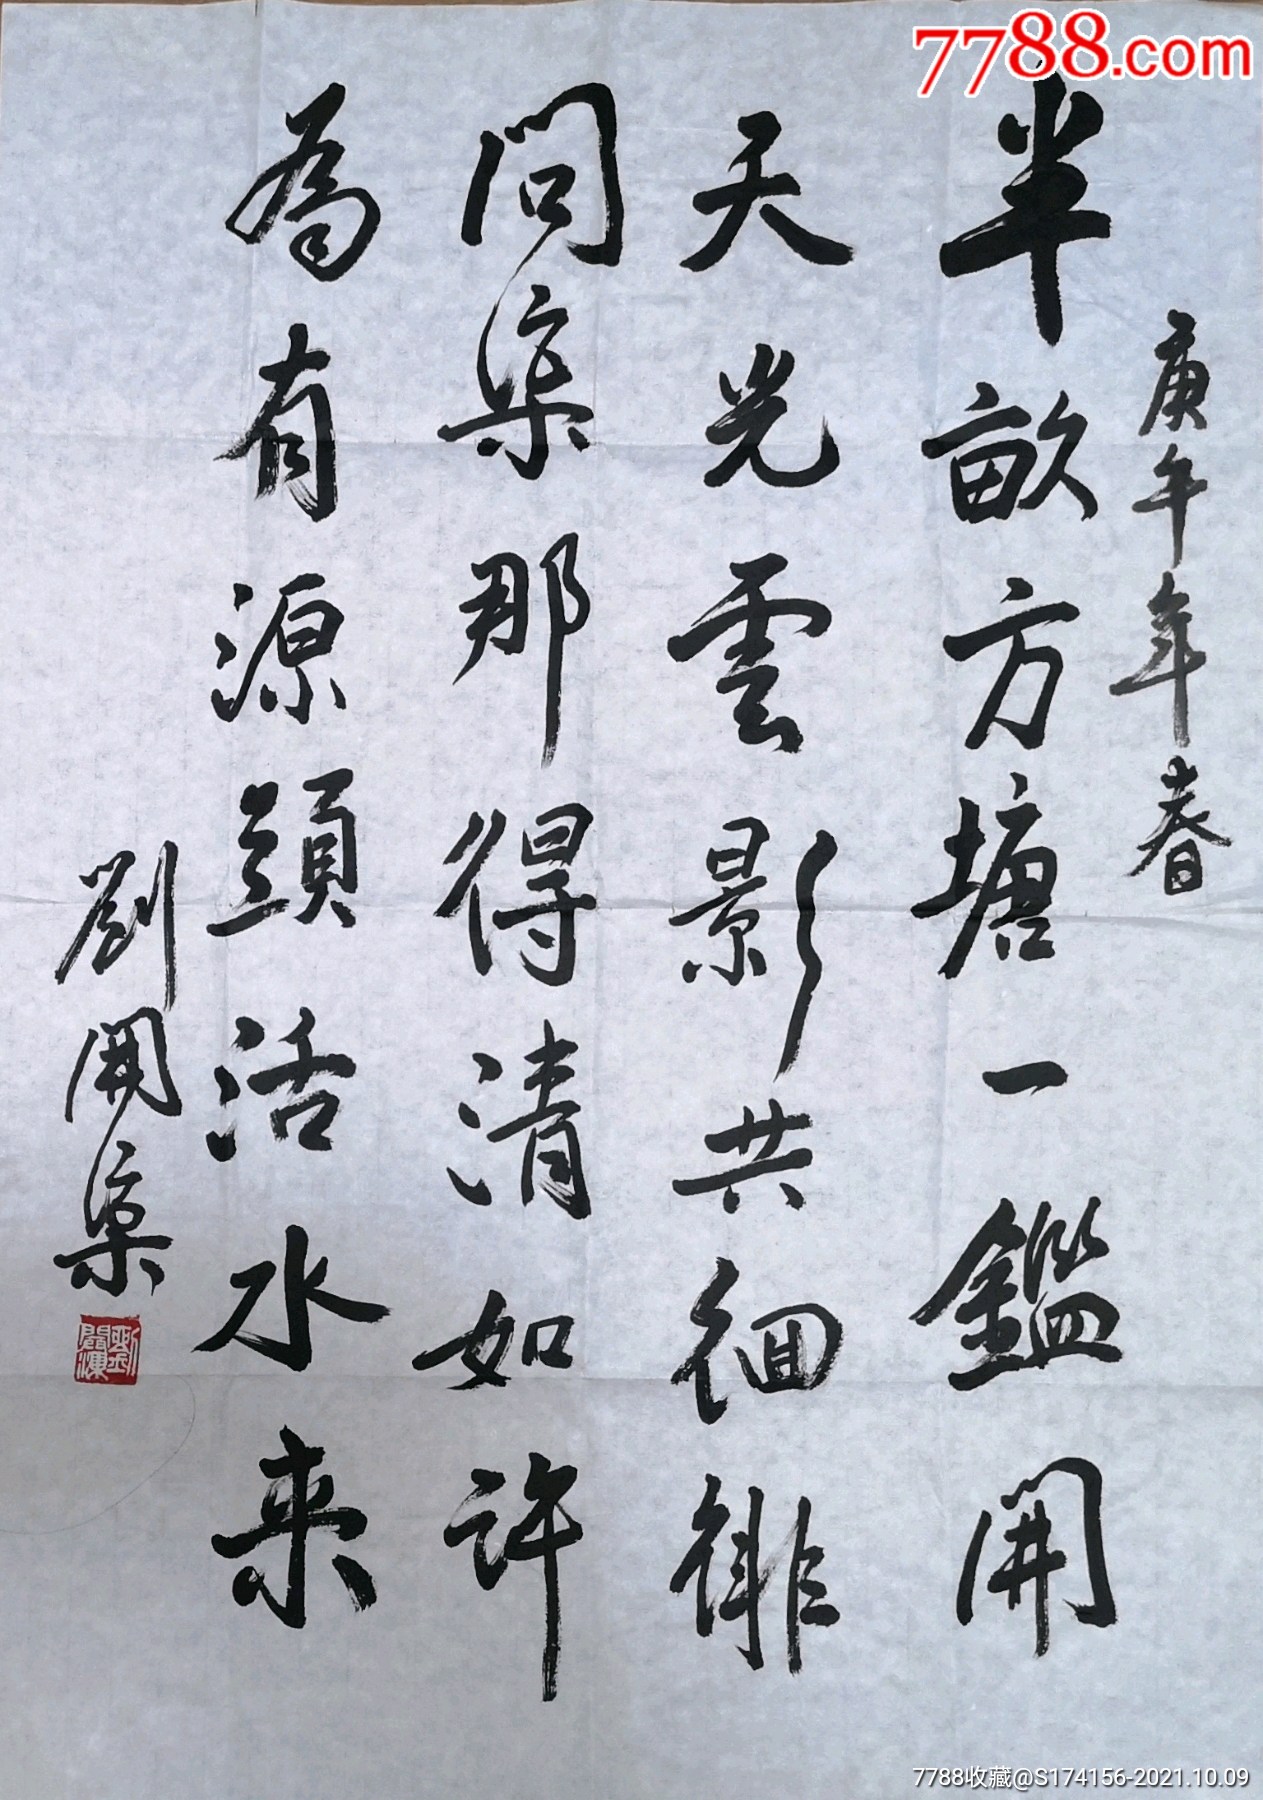 7788.com
庚午年春
半畝方塘一鑑開
天光雲影共徊徘
問渠那得清如許
為有源頭活水来
劉開渠
7788收藏@S174156-2021.10.09